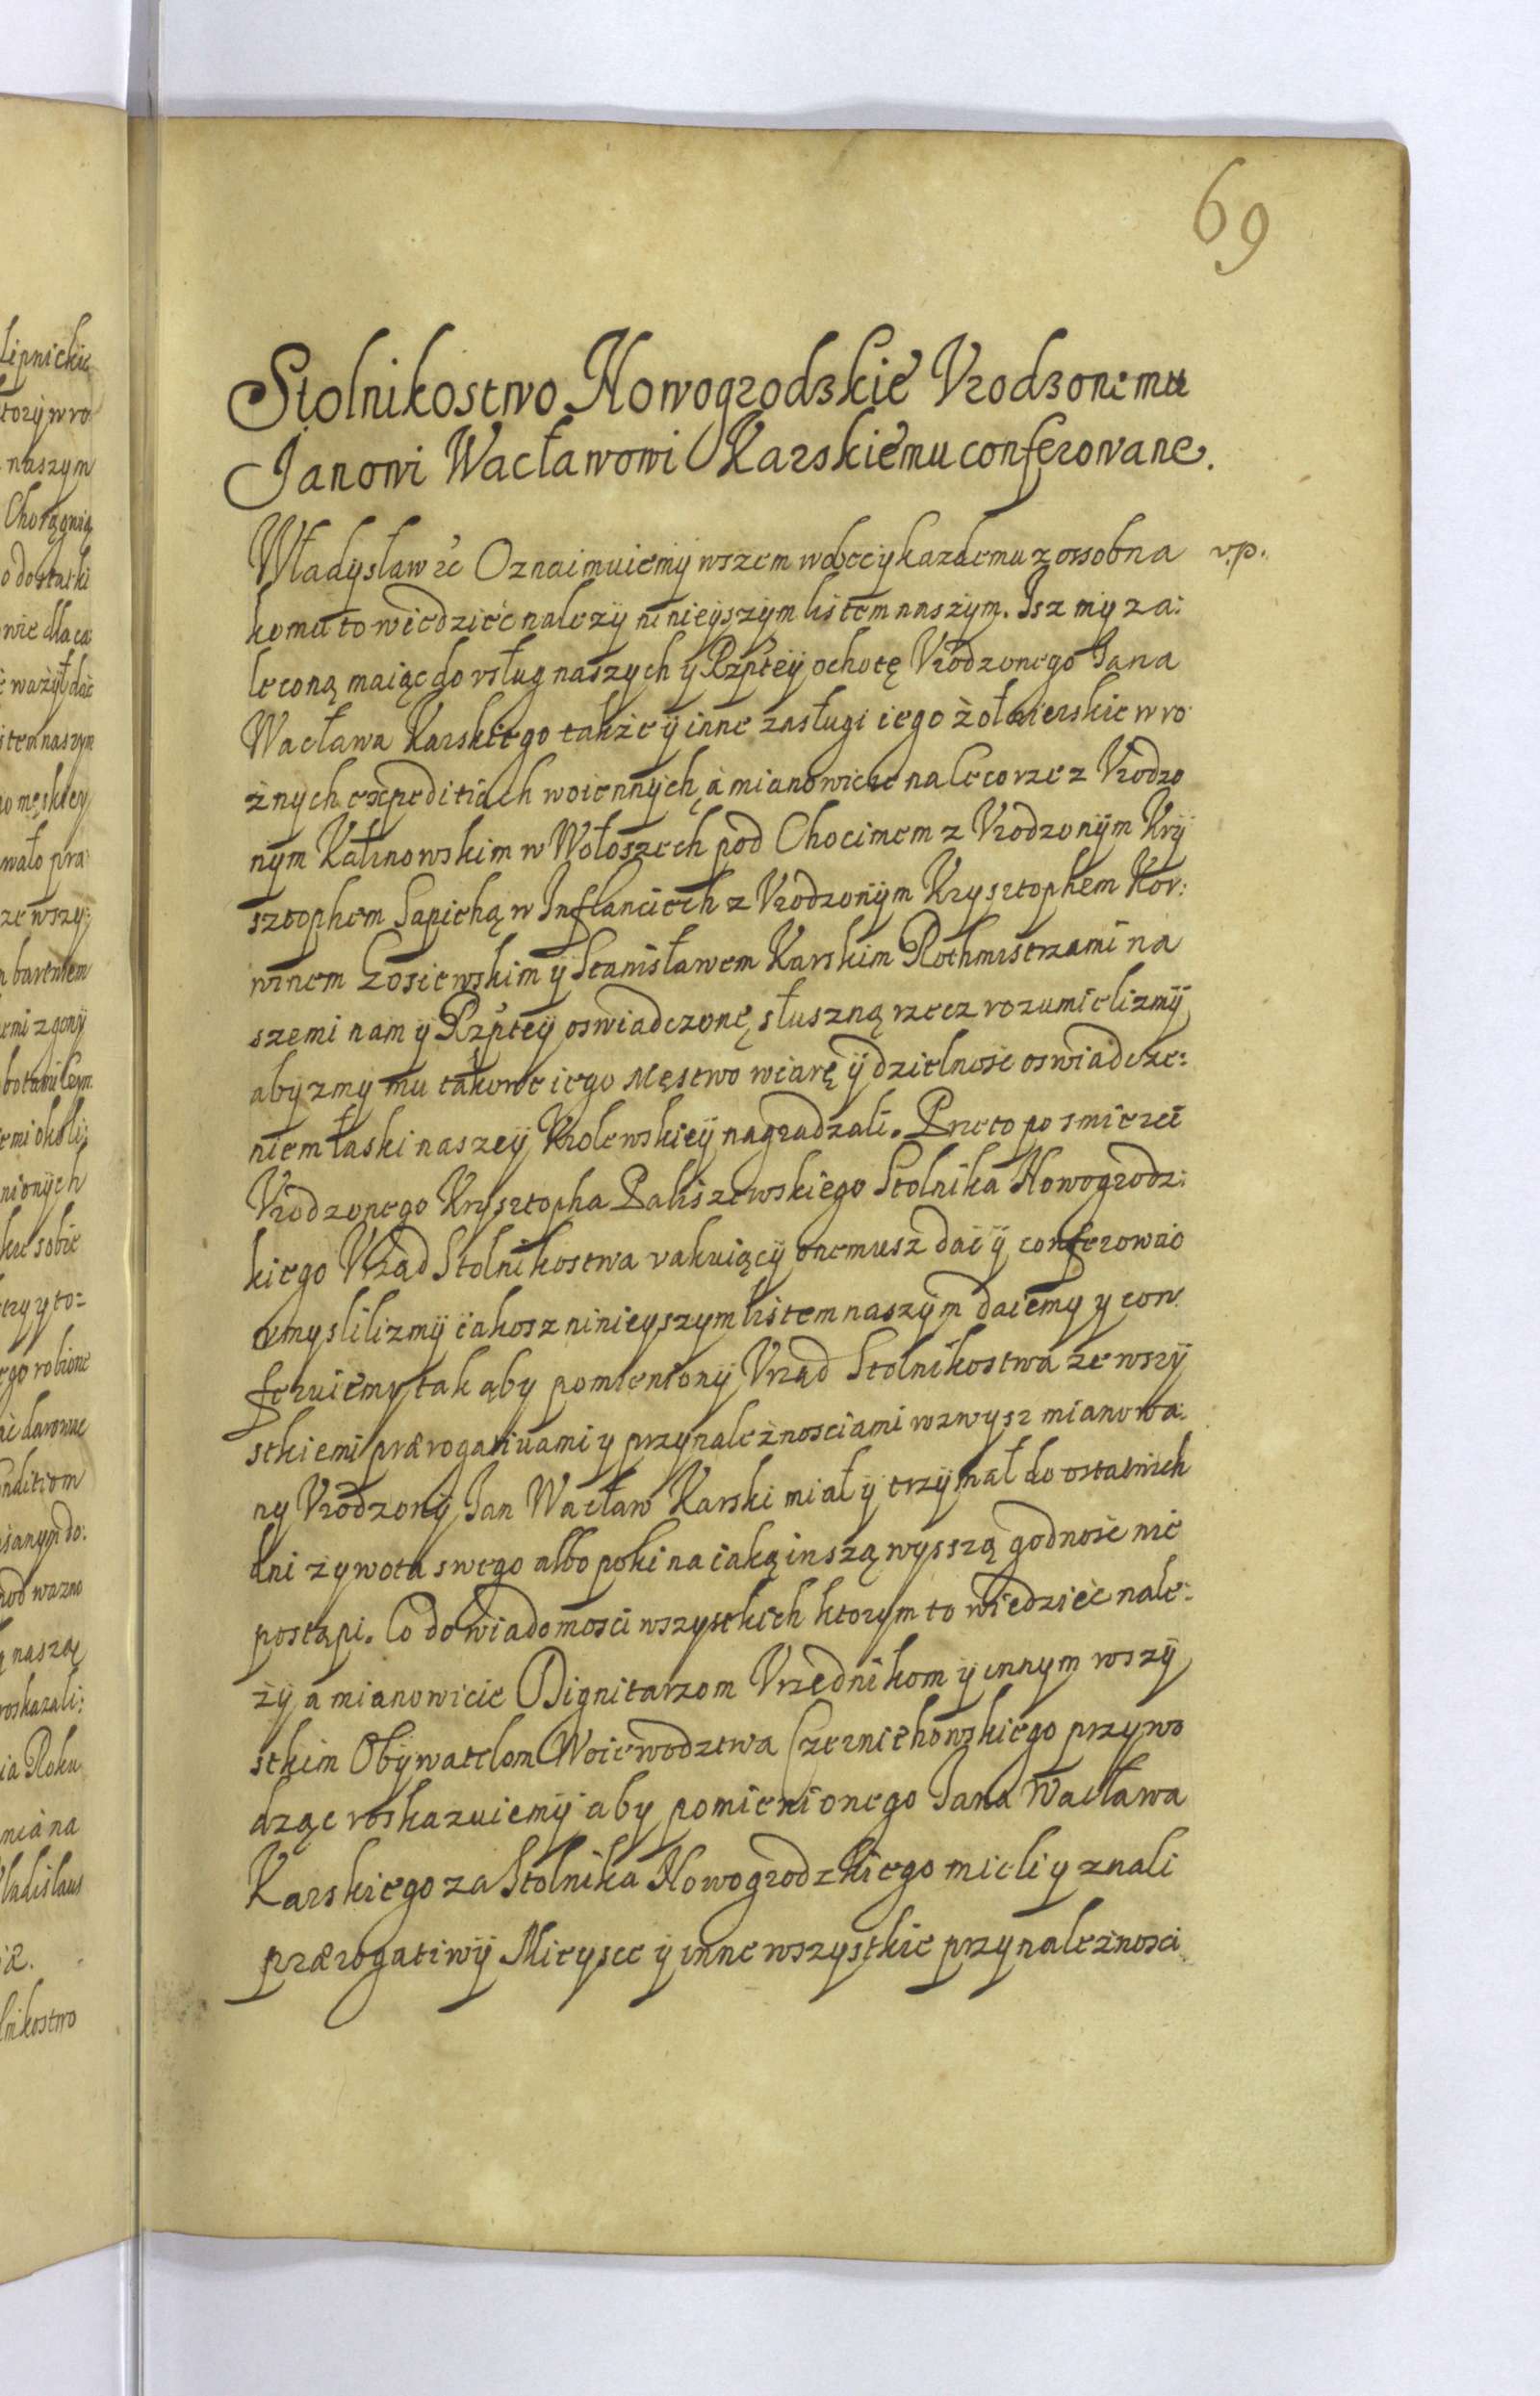 69
Stolnikostwo Nowogrodzkie Vrodzonemu
Janowi Wacławowi Karskiemu conferowane.
Władysław etc Oznaimuiemÿ wszem wobec ÿ kazdemu z ossobna v.p.
komu to wiedzieć nalezÿ ninieÿszÿm listem naszÿm. Isz mÿ za:
leconą maiąc do vsług naszych ÿ Rzpteÿ ochotę Vrodzonego Jana
Wacława Karskiego takze ÿ inne zasługi iego żołnierskie w ro
żnych expeditiach woiennÿch, a mianowicie na Lecorze z Vrodzo
nym Kalinowskim w Wołoszech pod Chocimem z Vrodzonÿm Krÿ
sztophem Sapiehą w Inflanciech z Vrodzonÿm Krysztophem Kor:
winem Gosiewskim ÿ Stanisławem Karskim Rothmistrzami na
szemi nam ÿ Rzpteÿ oswiadczonę, słuszną rzecz rozumielizmÿ
abyzmy mu takowe iego męstwo wiarę ÿ dzielność oswiadcze:
niem łaski naszeÿ Krolewskieÿ nagradzali. Przeto po smierci
Vrodzonego Krysztopha Paliszewskiego Stolnika Nowogrodz:
kiego Vrząd Stolnikostwa vakuiącÿ onemusz dać ÿ conferować
vmyslilizmÿ iakosz ninieyszym listem naszÿm daiemy y con
feruiemy tak aby pomienionÿ Vrząd Stolnikostwa ze wszÿ
stkiemi prærogatiuami y przynależnosciami wzwysz mianowa:
ny Vrodzonÿ Jan Wacław Karski miał ÿ trzÿmał do ostatnich
dni zywota swego albo poki na iaką inszą wysszą godność nie
postąpi. Co do wiadomosci wszystkich ktorym to wiedzieć nale:
żÿ a mianowicie Dignitarzom Vrzędnikom ÿ innym wszÿ
stkim Obÿwatelom Woiewodztwa Czerniehowskiego przywo
dząc roskazuiemÿ aby pomienionego Jana Wacława
Karskiego za Stolnika Nowogrodzkiego mieli y znali
prærogatiwÿ Mieysce ÿ inne wszystkie przynależnosci